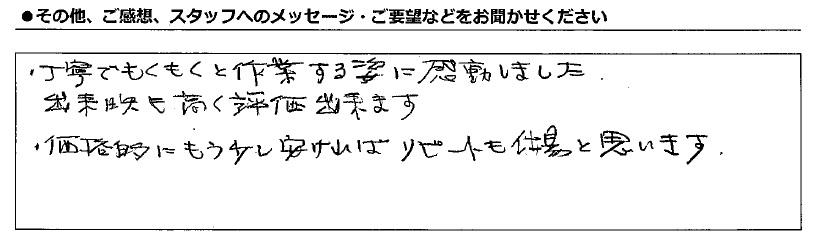 ●その他、ご感想、スタッフへのメッセージ・ご要望などをお聞かせください
・丁寧でもくもくと作業する姿に感動しました.
出来映も高く評価出来ます
・価格的にもう少し安ければリピートも
と思います.